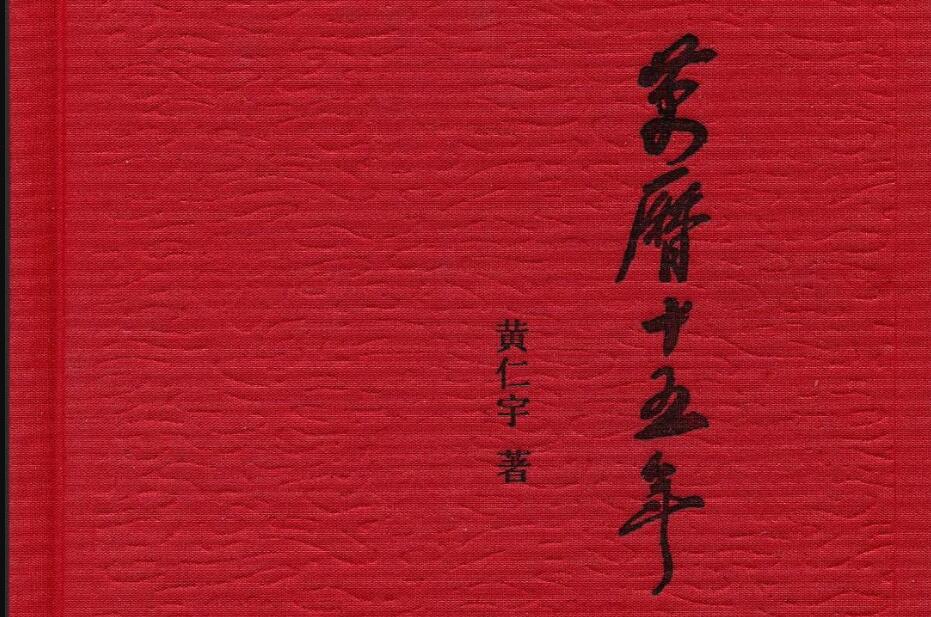 萬曆十五年
黄仁宇 著